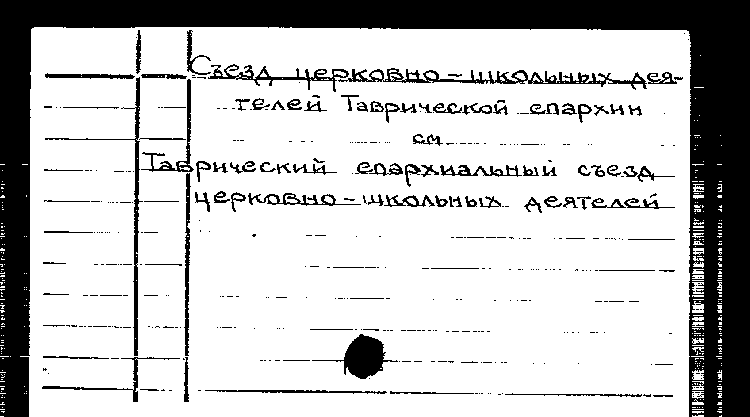 Съезд церковно-школьных дея-
телей Таврической епархии
см
Таврический епархиальный съезд
церковно-школьных деятелей